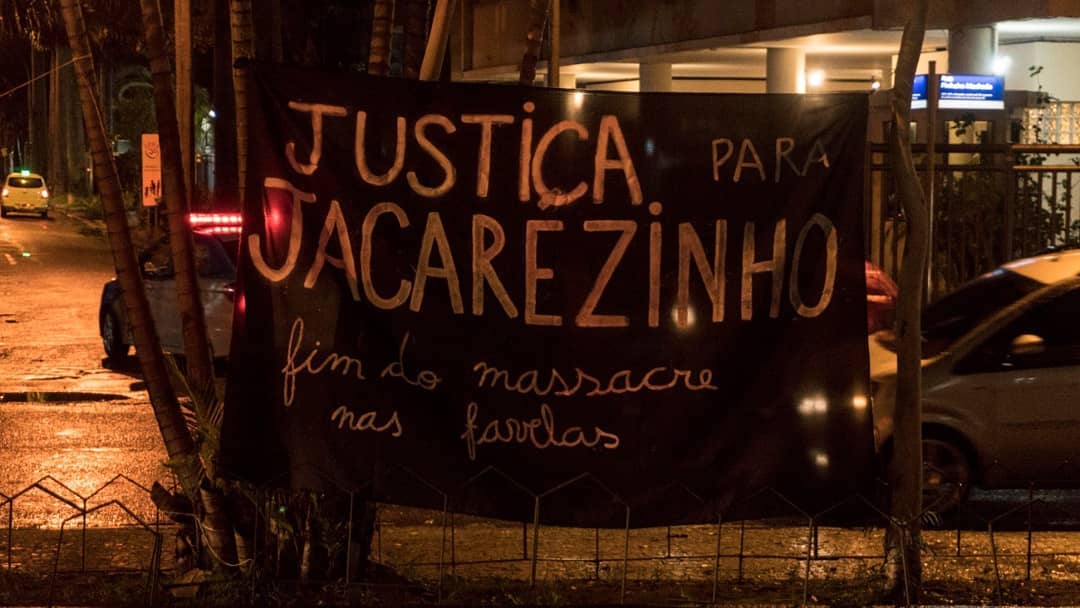 JUSTIÇA PARA
JACAREZINHO
fim do massacre
nas favelas